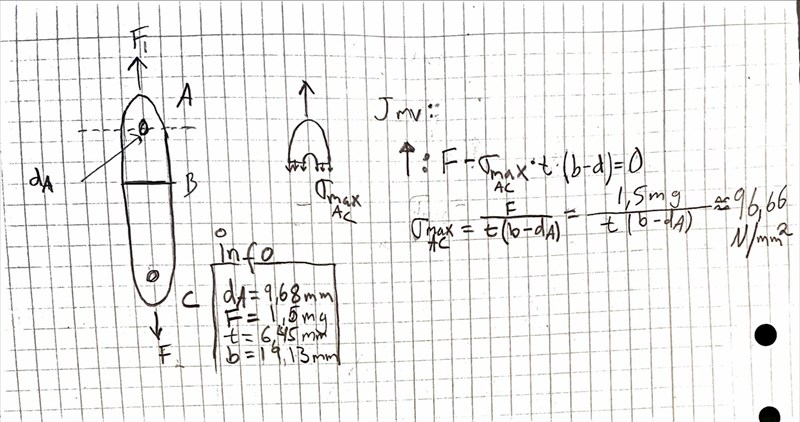 F₁
A
dA
B
C
F
σmax
AC
info
dA = 9,68mm
F = 1,5mg
t = 6,45mm
b = 19,13mm
Jmv:
↑: F - σmax AC · t · (b-d) = 0
σmax AC = F / t(b-dA) = 1,5mg / t(b-dA) ≈ 96,66
N/mm²